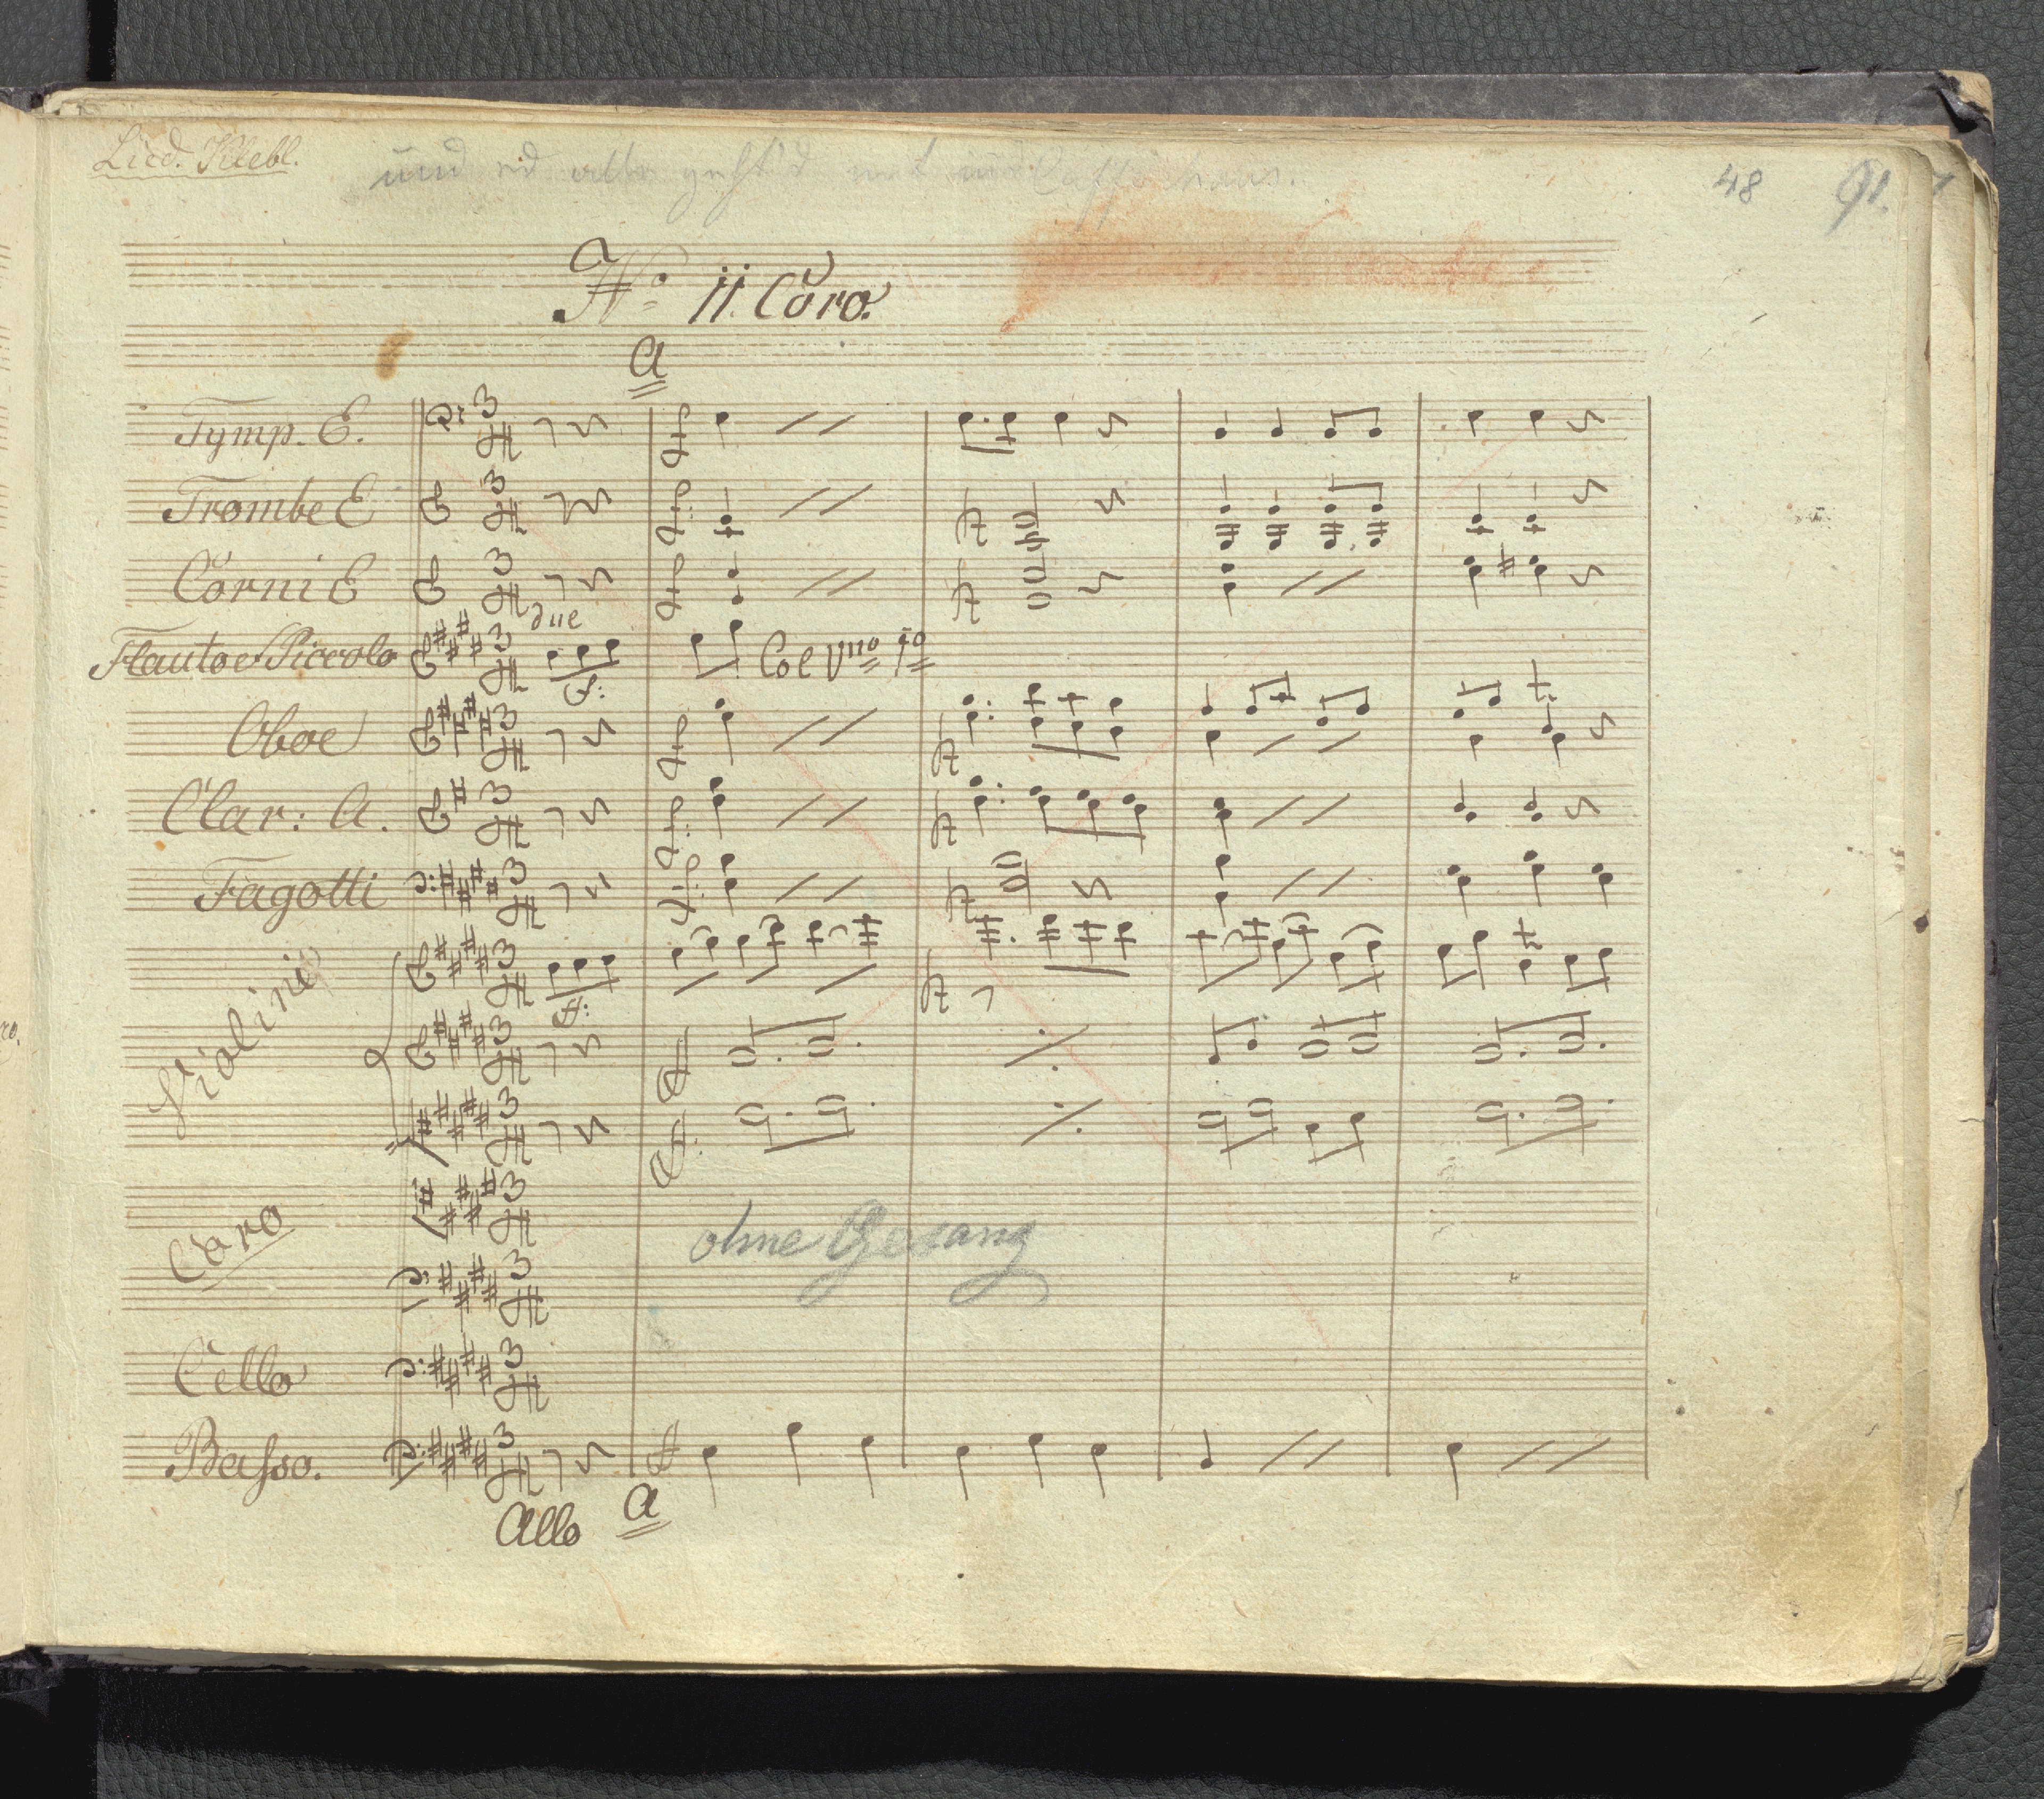 Lied. Klebl.
und
48 91.
No 11. Coro.
A
Tymp. E.
Trombe E
Corni E
due
Flauto e Piccolo
Col Vno 1o
Oboe
Clar: A.
Fagotti
Violini
Coro
ohne Gesang
Cello
Basso.
Allo A